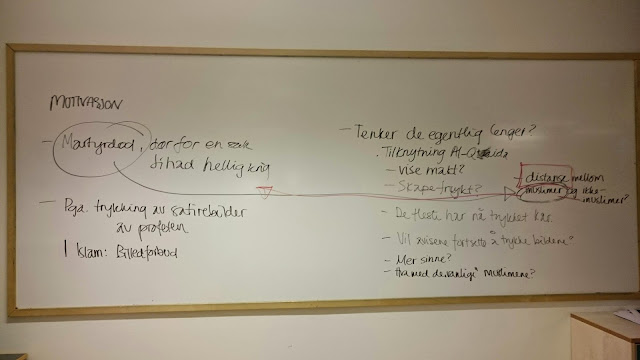 MOTIVASJON
- Martyrdød, dør for en sak
Jihad hellig krig
- Pga. trykking av satirebilder
av profeten
I Islam: Billedforbud
- Tenker de egentlig lenger?
. Tilknytning Al-Qaida
- vise makt?
- Skape frykt?
- distanse mellom
muslimer og ikke-
muslimer?
- De fleste har nå trykket
- Vil avisene fortsette å trykke bildene?
- Mer sinne?
- Hva med de "vanlige" muslimene?